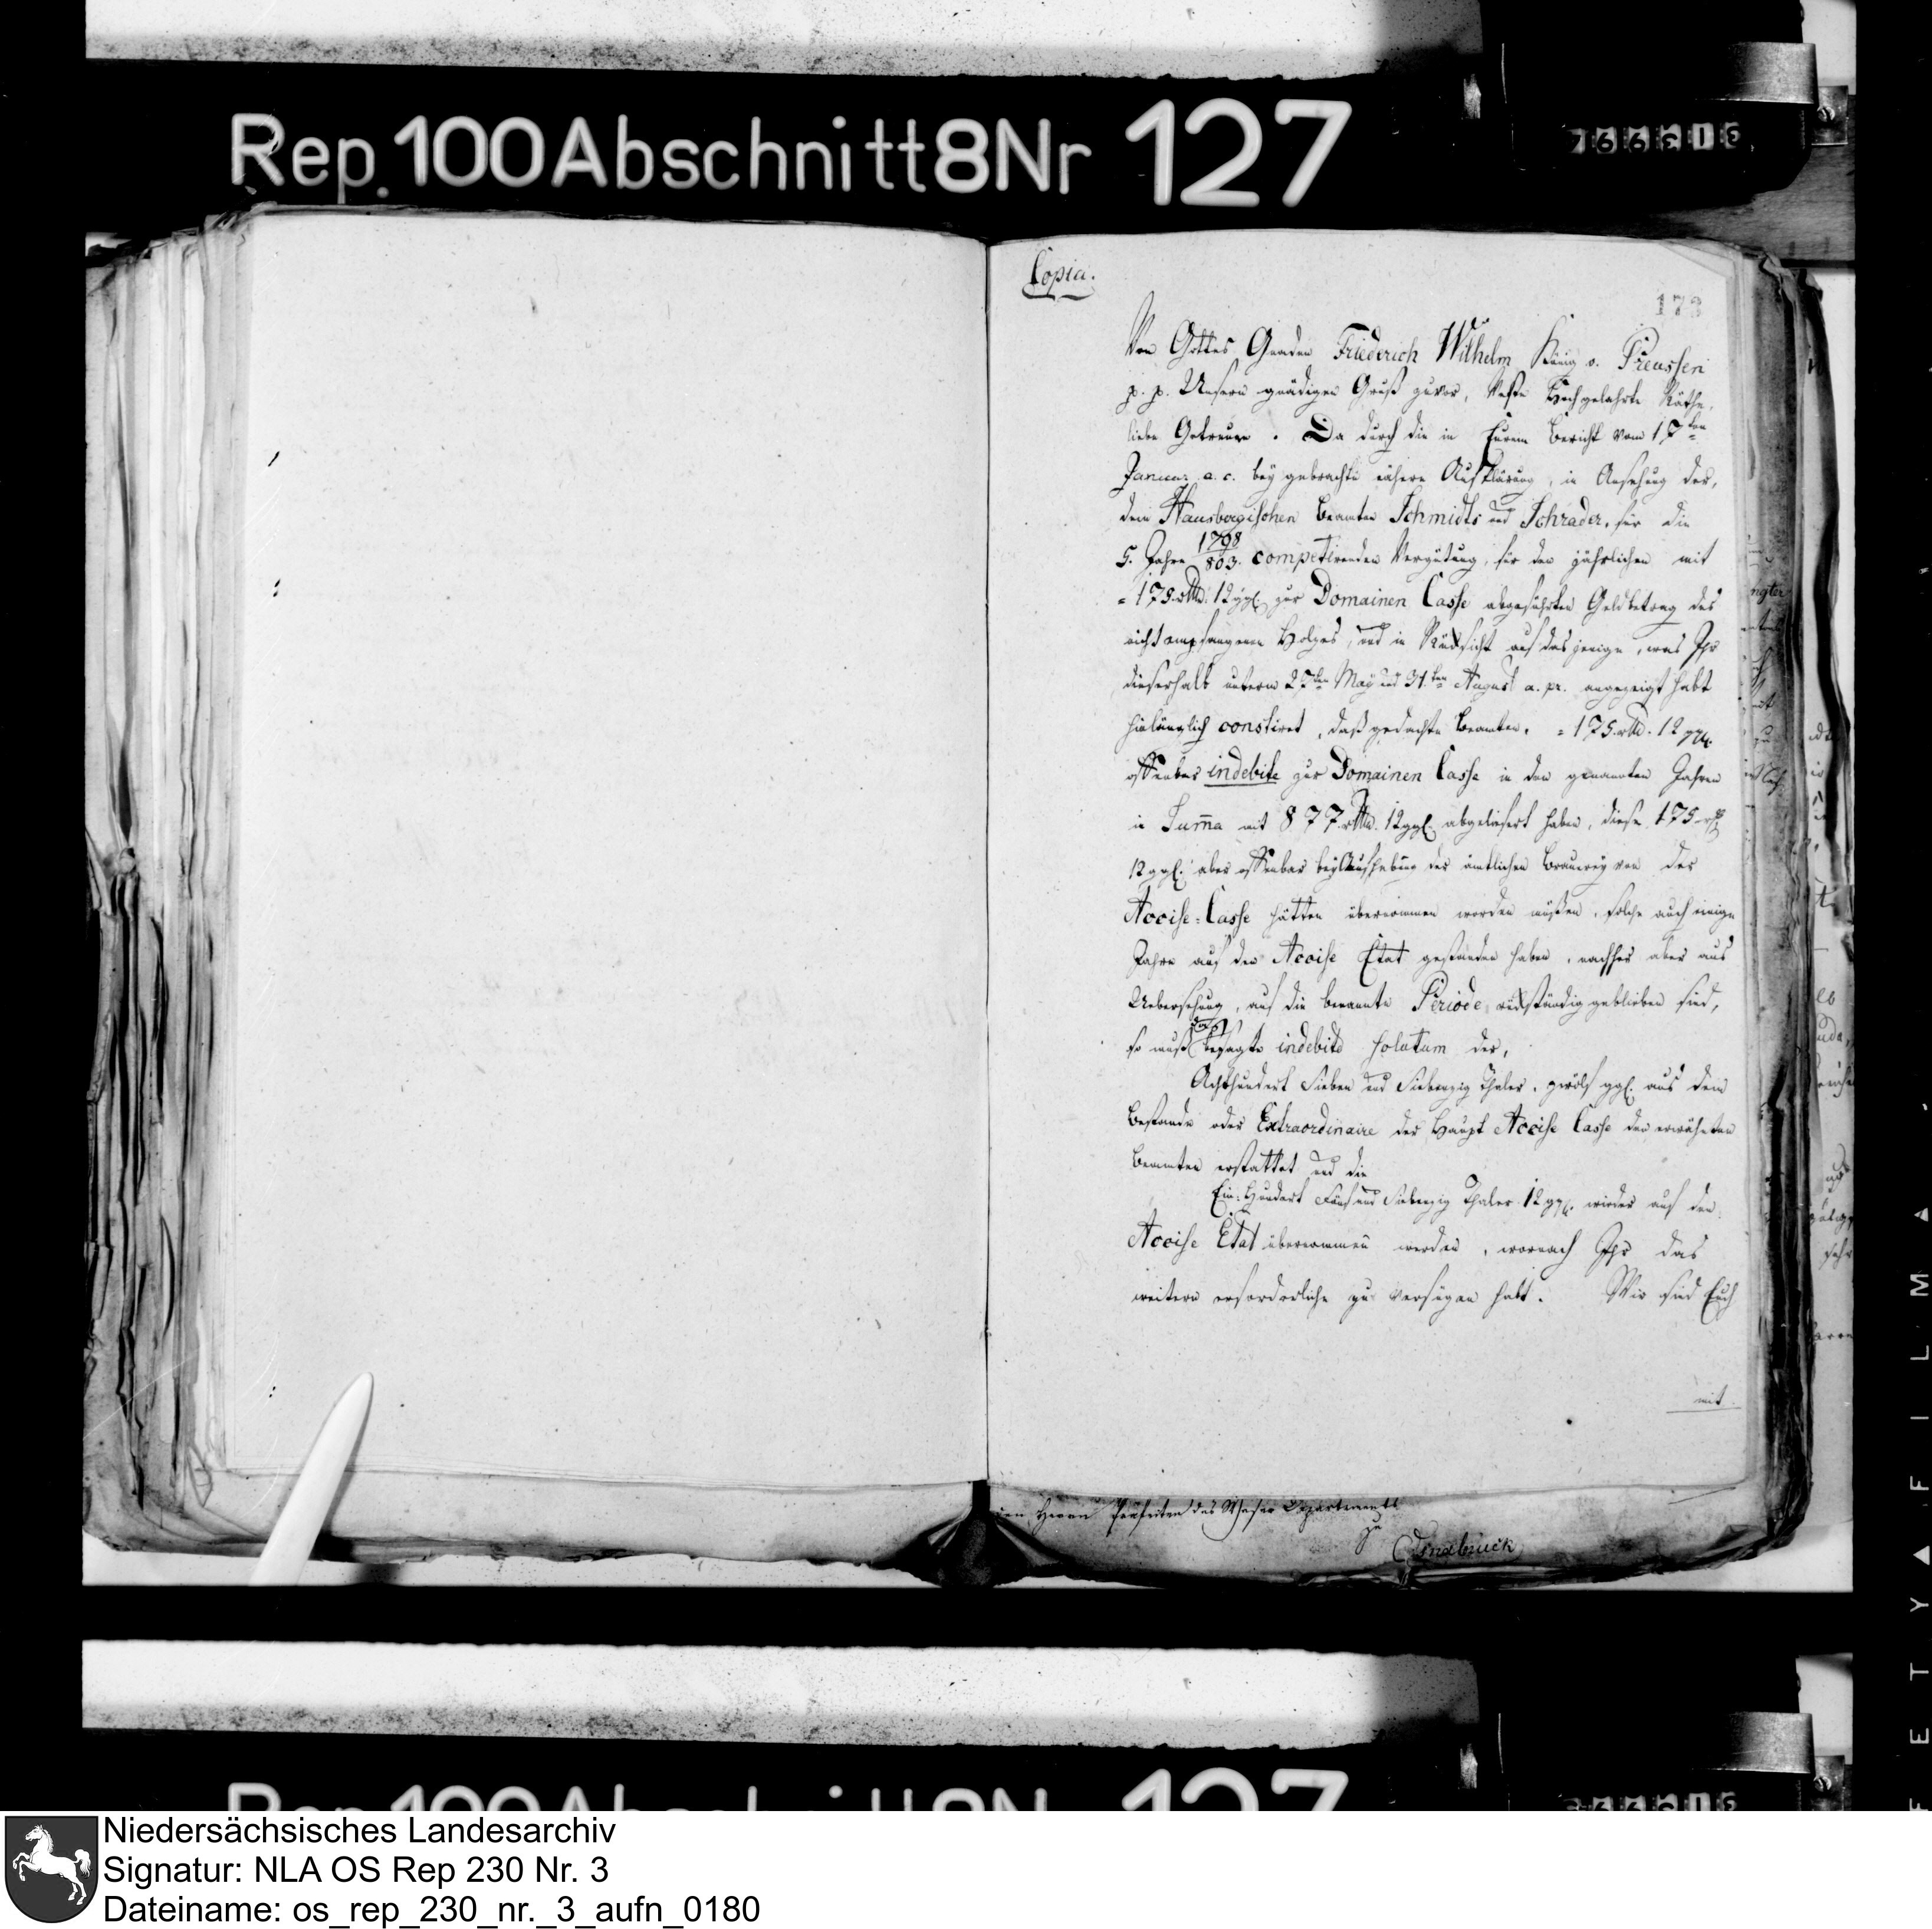 Rep. 100 Abschnitt 8 Nr 127
Copia.
173
Von Gottes Gnaden Friederich Wilhelm König v. Preussen
p. p. Unsern gnädigen Gruß zuvor, Veste Hochgelahrte Räthe,
liebe Getreue. Da durch die in Eurem Bericht vom 17ten
Januar a. c. beygebrachte nähere Aufklärung, in Ansehung der,
dem Hausbergischen Beamten Schmidts und Schrader, für die
5. Jahre 1798/803. competirenden Vergütung, für den jährlichen mit
= 175 rthlr. 12 ggl. zur Domainen Casse abgeführten Geldbetrag des
nicht empfangenen Holzes, und in Rücksicht auf dasjenige, was Ihr
dieserhalb unterm 27ten May und 31.ten August a. pr. angezeigt habt
hinlänglich constiret, daß gedachte Beamten, = 175. rthlr. 12 ggl.
offenbar indebite zur Domainen Casse in den genannten Jahren
in Suma mit 877 rthlr. 12 ggl. abgeliefert haben, diese 175 rthlr
12 ggl. aber offenbar bey Aufhebung der amtlichen Brauerey von der
Accise-Casse hätten übernommen werden müßen, solche auch einige
Jahre auf den Accise Etat gestanden haben, nachher aber aus
Uebersehung, auf die benannte Periode rückständig geblieben sind,
so muß das besagte indebite solutum der,
Achthundert Sieben und Siebenzig Thaler, zwölf ggl. aus dem
Bestande oder Extraordinaire der Haupt Accise Casse den erwähnten
Beamten erstattet und die
Ein-Hundert Fünf und Siebenzig Thaler 12 ggl. wieder auf den
Accise Etat übernommen werden, wornach Ihr das
weitere erforderliche zu verfügen habt. Wir sind Euch
mit
den Herrn Präfecten des Weser Departements
zu
Osnabrück
Niedersächsisches Landesarchiv
Signatur: NLA OS Rep 230 Nr. 3
Dateiname: os_rep_230_nr._3_aufn_0180